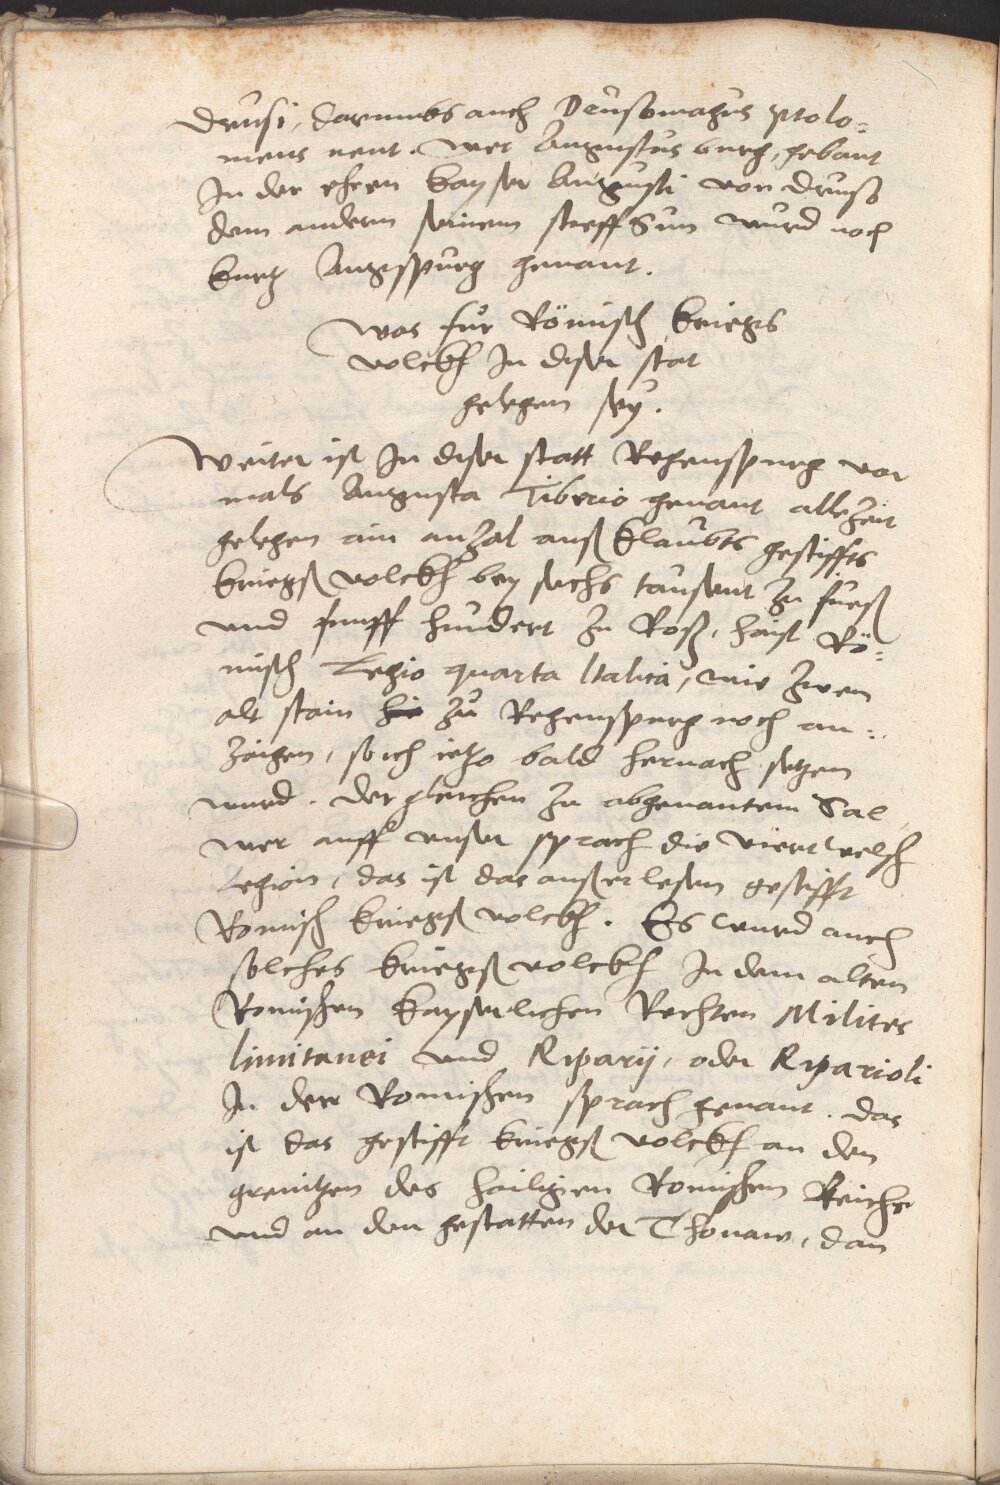 Drusi, darumbs auch Drusomagus ptolo=
meus nent. wer Augustus burg, gebaut
In der ehren kayser Augusti von Druso
dem andern seinem steuff Sun wurd noch
kurtz Augspurg genant.
Was für Römisch kriegs
volckh In diser stat
gelegen sey.
Weiter ist In diser statt Regenspurg vor
mals Augusta Tiberio genant alle Zeit
gelegen ain anzal auß klaubts gestiffts
kriegß volckh bey sechs tausent zu fueß
und funff hundert zu Roß, haist Rö=
misch Legio quarta Italica, wie zwen
alt stain hie zu Regenspurg noch an=
zaigen, so ich ietzo bald hernach setzen
wurd. der gleichen zu abgenantem Sal,
wer auff unser sprach die viert welsch
Legion, das ist das außerlesen gestifft
Romisch kriegß volckh. Es wurd auch
solches kriegß volckh In dem alten
Romischen kayserlichen Rechten Milites
limitanei und Riparij, oder Riparioli
In der Romischen sprach genant. das
ist das gestifft kriegß volckh an den
grenitzen des hailigen Romischen Reichs
und an den gestatten der Thonaw, dan